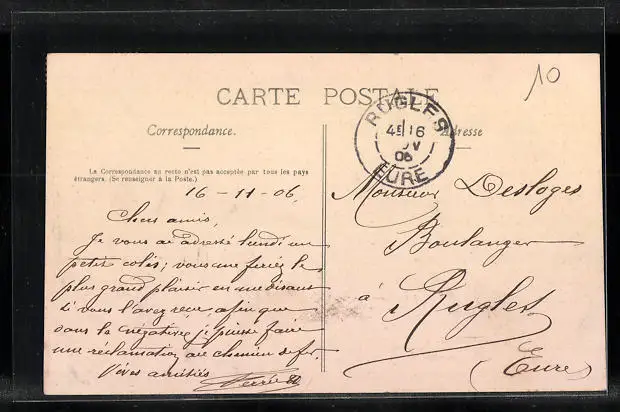 10
CARTE POSTALE
RUGLES
4E 16
OV
06
EURE
Correspondance.
Adresse
La Correspondance au recto n'est pas acceptée par tous les pays
étrangers. (Se renseigner à la Poste.)
16-11-06.
Chers amis,
Je vous ai adressé lundi un
petit colis; vous me feriez le
plus grand plaisir en me disant
si vous l'avez reçu afin que
dans la négative je puisse faire
une réclamation au chemin de fer.
Vives amitiés
Monsieur Desloges
Boulanger
à Rugles
(Eure)